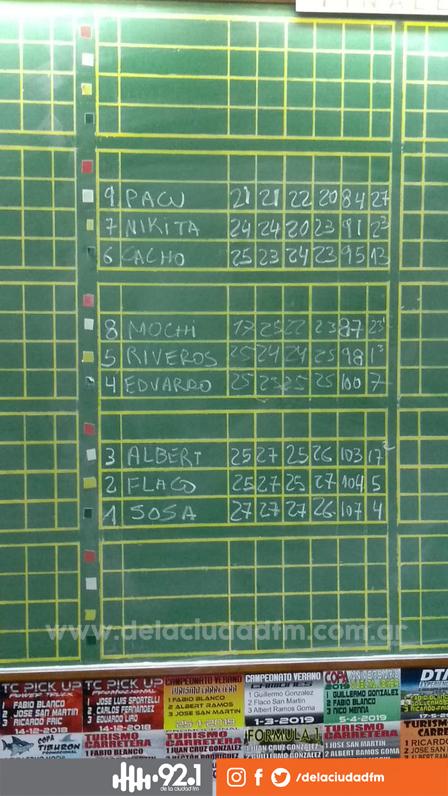 9 PACU 21 21 22 20 84 27
7 NIKITA 24 24 20 23 91 2³
6 CACHO 25 23 24 23 95 13
8 MOCHI 17 25 22 23 87 23
5 RIVEROS 25 24 24 25 98 1³
4 EDUARDO 25 23 25 25 100 7
3 ALBERT 25 27 25 26 103 17²
2 FLACO 25 27 25 27 104 5
1 SOSA 27 27 27 26 107 4
www.delaciudadfm.com.ar
TC PICK UP
1 FABIO BLANCO
2 JOSE SAN MARTIN
3 RICARDO FRIC
14-12-2018
TC PICK UP
1 JOSE LUIS SPORTELLI
2 CARLOS FERNANDEZ
3 EDUARDO LIRO
14-12-2018
CAMPEONATO VERANO
TURISMO CARRETERA
1 FABIO BLANCO
2 ALBERT RAMOS
3 JOSE SAN MARTIN
25-1-2019
CAMPEONATO VERANO
1 Guillermo Gonzalez
2 Flaco San Martin
3 Albert Ramos Gorna
1-3-2019
COPA
2019
1 GUILLERMO GONZALEZ
2 FABIO BLANCO
3 NICO MENNA
5-4-2019
DTM
COPA TIBURON
TURISMO CARRETERA
1 FABIO BLANCO
TURISMO CARRETERA
1 JUAN CRUZ GONZALEZ
FORMULA 1
1 JUAN CRUZ GONZALEZ
TURISMO CARRETERA
1 JOSE SAN MARTIN
2 ALBERT RAMOS
TURISMO CARRETERA
1 RICARDO
2 JOSE SAN
92.1
de la ciudad fm
/delaciudadfm